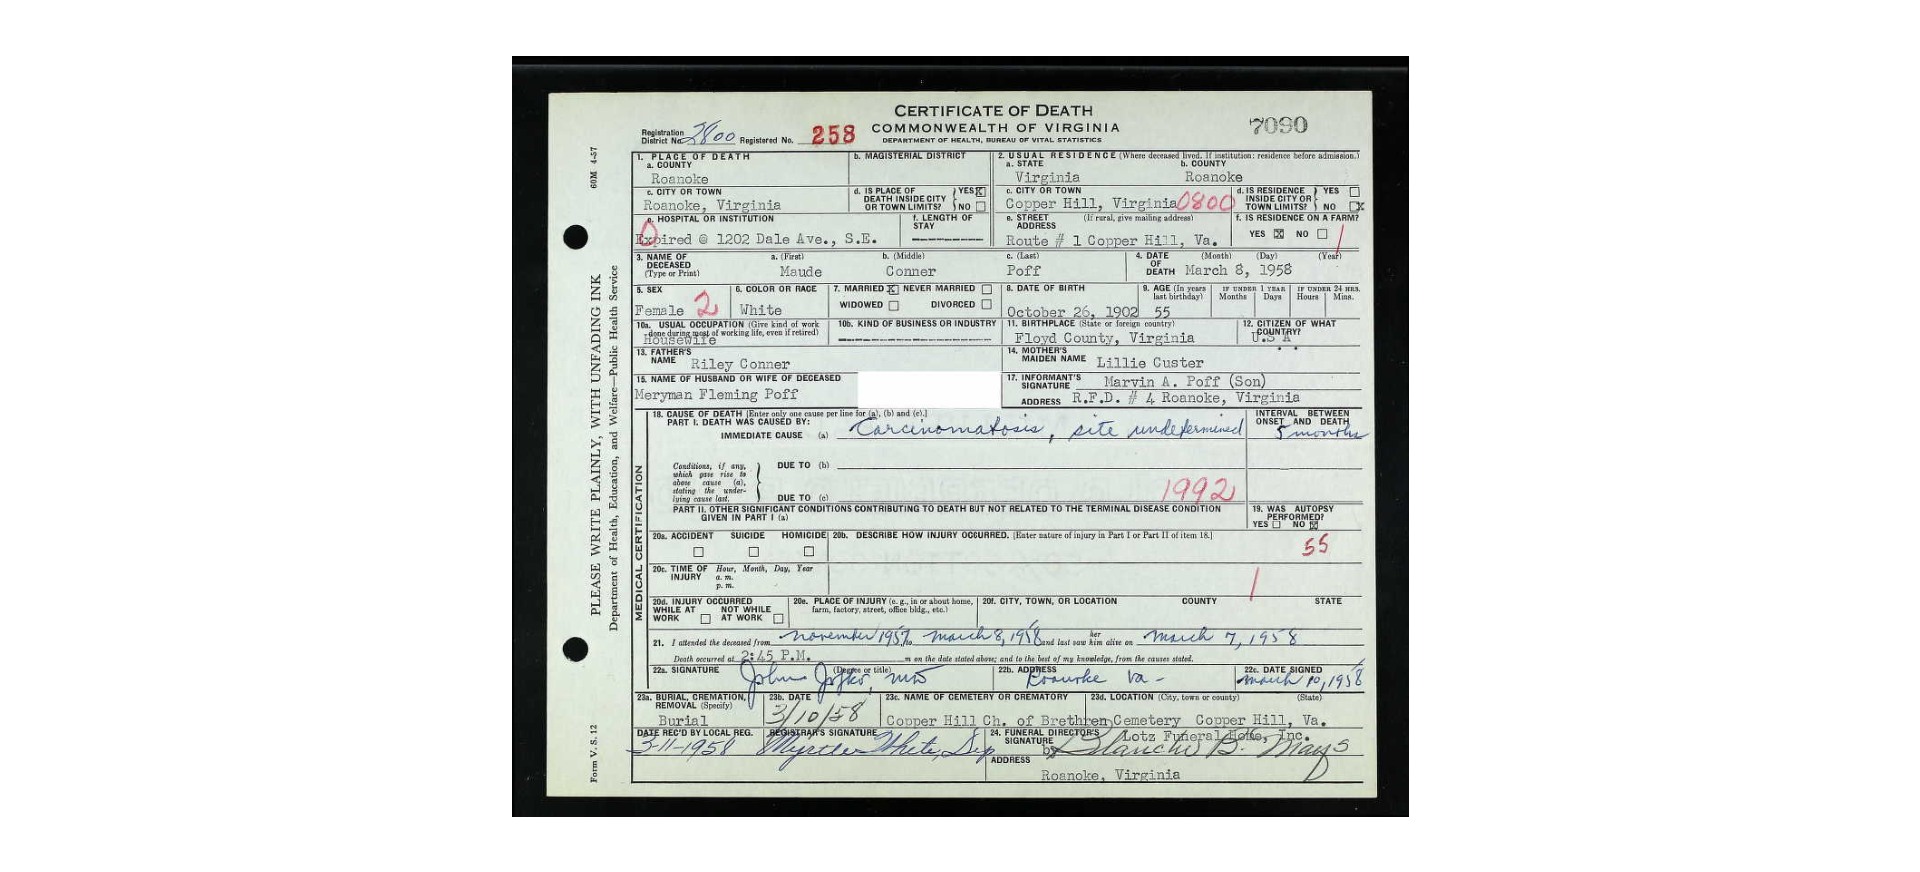 CERTIFICATE OF DEATH
COMMONWEALTH OF VIRGINIA
DEPARTMENT OF HEALTH, BUREAU OF VITAL STATISTICS
7090
Registration District No. 2800 Registered No. 258
1. PLACE OF DEATH
a. COUNTY
Roanoke
b. MAGISTERIAL DISTRICT
2. USUAL RESIDENCE (Where deceased lived. If institution: residence before admission.)
a. STATE
Virginia
b. COUNTY
Roanoke
c. CITY OR TOWN
Roanoke, Virginia
d. IS PLACE OF DEATH INSIDE CITY OR TOWN LIMITS? YES X NO
c. CITY OR TOWN
Copper Hill, Virginia 0800
d. IS RESIDENCE INSIDE CITY OR TOWN LIMITS? YES NO X
e. HOSPITAL OR INSTITUTION
0
Expired @ 1202 Dale Ave., S.E.
f. LENGTH OF STAY
----------
e. STREET ADDRESS (If rural, give mailing address)
Route # 1 Copper Hill, Va.
f. IS RESIDENCE ON A FARM?
YES X NO
3. NAME OF DECEASED (Type or Print)
a. (First) b. (Middle) c. (Last)
Maude Conner Poff
4. DATE OF DEATH (Month) (Day) (Year)
March 8, 1958
5. SEX
Female 2
6. COLOR OR RACE
White
7. MARRIED X NEVER MARRIED
WIDOWED DIVORCED
8. DATE OF BIRTH
October 26, 1902
9. AGE (In years last birthday)
55
IF UNDER 1 YEAR Months Days
IF UNDER 24 HRS. Hours Mins.
10a. USUAL OCCUPATION (Give kind of work done during most of working life, even if retired)
Housewife
10b. KIND OF BUSINESS OR INDUSTRY
--------------------
11. BIRTHPLACE (State or foreign country)
Floyd County, Virginia
12. CITIZEN OF WHAT COUNTRY?
U.S.A.
13. FATHER'S NAME
Riley Conner
14. MOTHER'S MAIDEN NAME Lillie Custer
15. NAME OF HUSBAND OR WIFE OF DECEASED
Meryman Fleming Poff
17. INFORMANT'S SIGNATURE Marvin A. Poff (Son)
ADDRESS R.F.D. # 4 Roanoke, Virginia
18. CAUSE OF DEATH [Enter only one cause per line for (a), (b) and (c).]
PART I. DEATH WAS CAUSED BY:
IMMEDIATE CAUSE (a) Carcinomatosis, site undetermined
INTERVAL BETWEEN ONSET AND DEATH
5 months
Conditions, if any, which gave rise to above cause (a), stating the underlying cause last.
DUE TO (b)
DUE TO (c)
1992
PART II. OTHER SIGNIFICANT CONDITIONS CONTRIBUTING TO DEATH BUT NOT RELATED TO THE TERMINAL DISEASE CONDITION GIVEN IN PART I (a)
19. WAS AUTOPSY PERFORMED?
YES NO X
20a. ACCIDENT SUICIDE HOMICIDE
20b. DESCRIBE HOW INJURY OCCURRED. (Enter nature of injury in Part I or Part II of item 18.)
55
20c. TIME OF INJURY Hour, Month, Day, Year
a. m.
p. m.
20d. INJURY OCCURRED
WHILE AT WORK NOT WHILE AT WORK
20e. PLACE OF INJURY (e. g., in or about home, farm, factory, street, office bldg., etc.)
20f. CITY, TOWN, OR LOCATION COUNTY STATE
21. I attended the deceased from November 1957 to March 8, 1958 and last saw her him alive on March 7, 1958
Death occurred at 2:45 P.M. m on the date stated above; and to the best of my knowledge, from the causes stated.
22a. SIGNATURE (Degree or title)
John MD
22b. ADDRESS
Roanoke Va -
22c. DATE SIGNED
March 10, 1958
23a. BURIAL, CREMATION, REMOVAL (Specify)
Burial
23b. DATE
3/10/58
23c. NAME OF CEMETERY OR CREMATORY
Copper Hill Ch. of Brethren Cemetery
23d. LOCATION (City, town or county) (State)
Copper Hill, Va.
DATE REC'D BY LOCAL REG.
3-11-1958
REGISTRAR'S SIGNATURE
Myrtle White, Dep
24. FUNERAL DIRECTOR'S SIGNATURE
Lotz Funeral Home, Inc.
by Blanche B. Mays
ADDRESS
Roanoke, Virginia
MEDICAL CERTIFICATION
60M 4-57
PLEASE WRITE PLAINLY, WITH UNFADING INK
Department of Health, Education, and Welfare—Public Health Service
Form V. S. 12